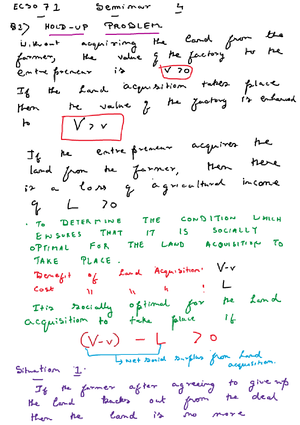 EC3071 Seminar 4
Q3) HOLD-UP PROBLEM
Without acquiring the land from the
farmer, the value of the factory to the
entrepreneur is v>0
If the Land acquisition takes place
then the value of the factory is enhanced
to V > v
If the entrepreneur acquires the
land from the farmer, then there
is a loss of agricultural income
of L > 0
• TO DETERMINE THE CONDITION WHICH
ENSURES THAT IT IS SOCIALLY
OPTIMAL FOR THE LAND ACQUISITION TO
TAKE PLACE.
Benefit of Land Acquisition: V-v
Cost " " " : L
It is socially optimal for the Land
acquisition to take place if
(V-v) - L > 0
↳ Net social surplus from Land
acquisition.
Situation 1.
If the farmer after agreeing to give up
the land backs out from the deal
then the land is no more